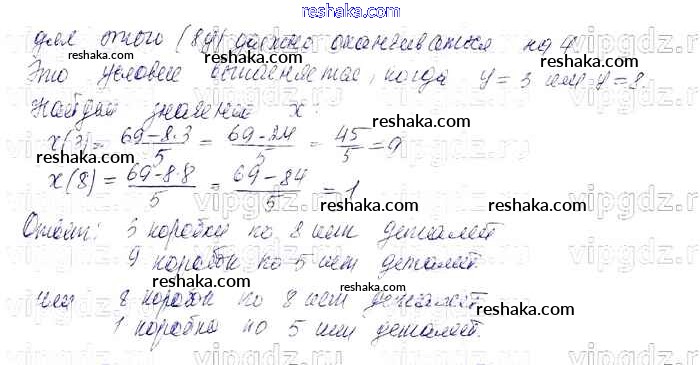 для этого (8y) должно оканчиваться на 4
Это условие выполняется, когда y=3 или y=8
Найдем значения x:
x(3) = 69-8·3/5 = 69-24/5 = 45/5 = 9
x(8) = 69-8·8/5 = 69-84/5 = 1
Ответ: 3 коробки по 8 шт деталей
9 коробок по 5 шт деталей.
или 8 коробок по 8 шт деталей
1 коробка по 5 шт деталей.
reshaka.com
reshaka.com
reshaka.com
reshaka.com
reshaka.com
reshaka.com
reshaka.com
reshaka.com
reshaka.com
reshaka.com
reshaka.com
vipgdz.ru
vipgdz.ru
vipgdz.ru